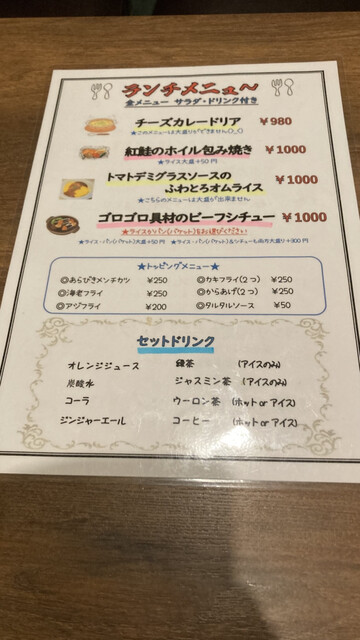 ランチメニュ〜
全メニュー サラダ・ドリンク付き
チーズカレードリア ￥980
★このメニューは大盛りができません○_○
紅鮭のホイル包み焼き ￥1000
★ライス大盛＋50円
トマトデミグラスソースの
ふわとろオムライス ￥1000
★こちらのメニューは大盛が出来ません
ゴロゴロ具材のビーフシチュー ￥1000
★ライスかパン(バケット)をお選びください！
★ライス・パン(バケット)大盛＋50円 ★ライス・パン(バケット)&シチューも両方大盛り＋300円
★トッピングメニュー★
◎あらびきメンチカツ ¥250 ◎カキフライ(2つ) ¥250
◎海老フライ ¥250 ◎からあげ(2つ) ¥250
◎アジフライ ¥200 ◎タルタルソース ¥50
セットドリンク
オレンジジュース 緑茶 (アイスのみ)
炭酸水 ジャスミン茶 (アイスのみ)
コーラ ウーロン茶 (ホット or アイス)
ジンジャーエール コーヒー (ホット or アイス)